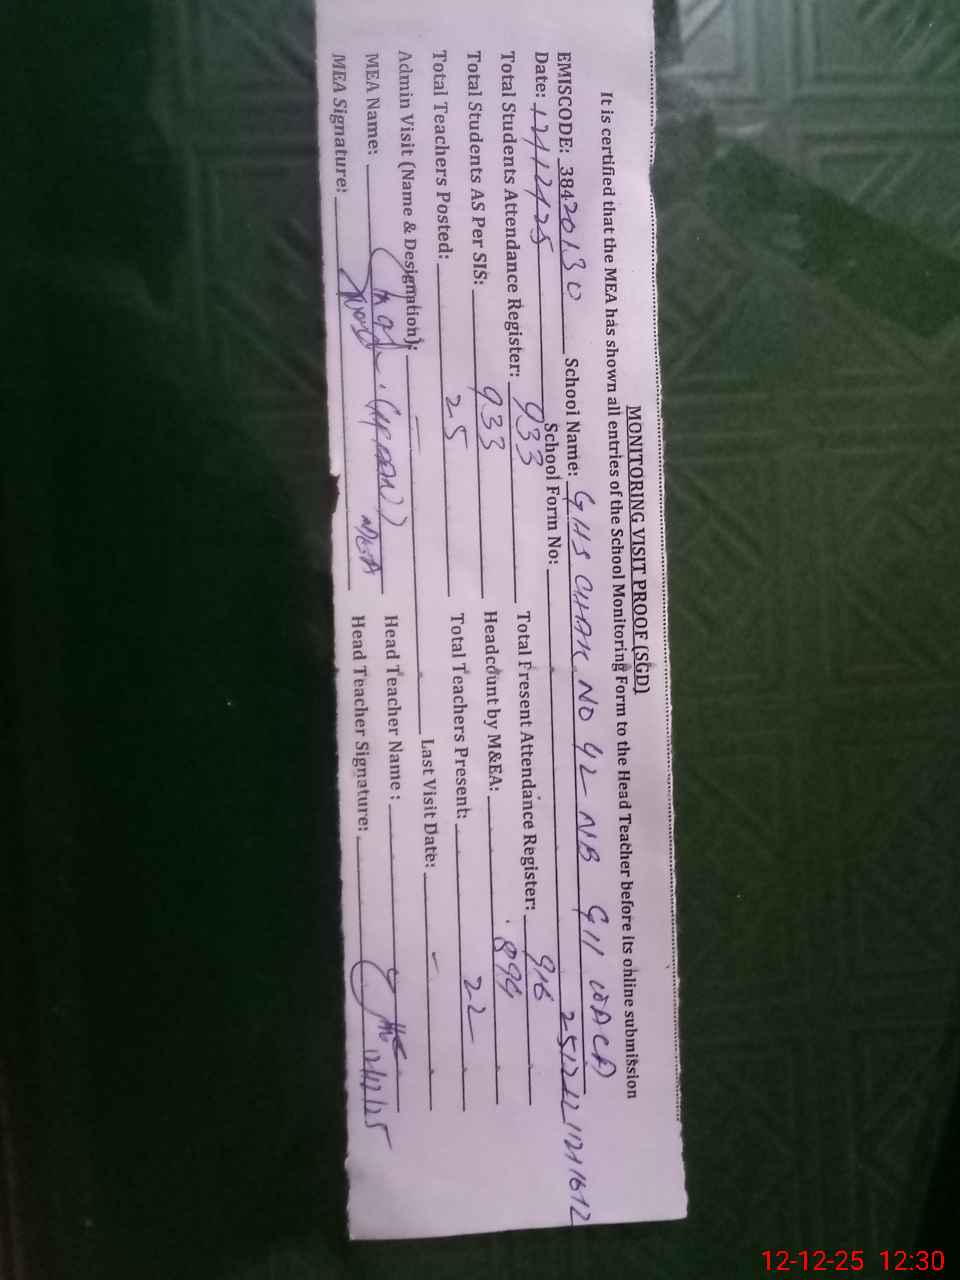 MONITORING VISIT PROOF (SGD)
It is certified that the MEA has shown all entries of the School Monitoring Form to the Head Teacher before its online submission
EMISCODE: 38420130 School Name: GHS CHAK NO 42 NB GII WACA
Date: 12/12/25 School Form No:
Total Students Attendance Register: 933 Total Present Attendance Register: 916
Total Students AS Per SIS: 933 Headcount by M&EA: 894
Total Teachers Posted: 25 Total Teachers Present: 22
Admin Visit (Name & Designation): Last Visit Date:
MEA Name: Head Teacher Name :
MEA Signature: Head Teacher Signature: 12/12/25
12-12-25 12:30